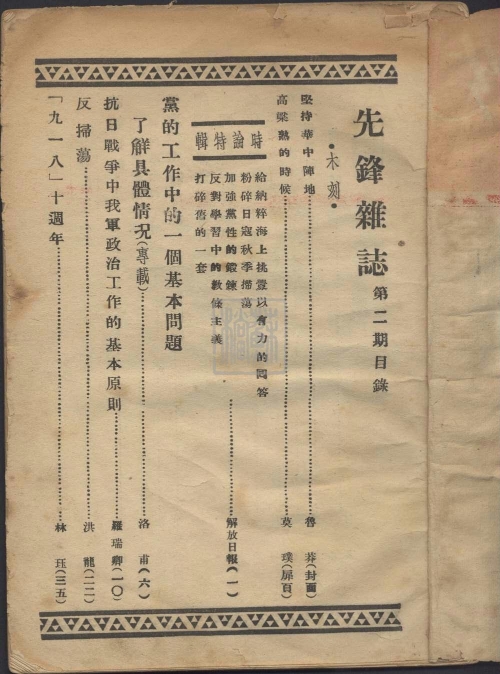 先鋒雜誌 第二期目錄
•木刻•
堅持華中陣地……魯莽(封面)
高粱熟的時候……莫璞(扉頁)
時論特輯
給納粹海上挑釁以有力的回答
粉碎日寇秋季掃蕩
加強黨性的鍛鍊
反對學習中的教條主義
打碎舊的一套
……解放日報(一)
黨的工作中的一個基本問題
了解具體情況(專載)……洛甫(六)
抗日戰爭中我軍政治工作的基本原則……羅瑞卿(一〇)
反掃蕩……洪龍(二二)
「九一八」十週年……林珏(三五)